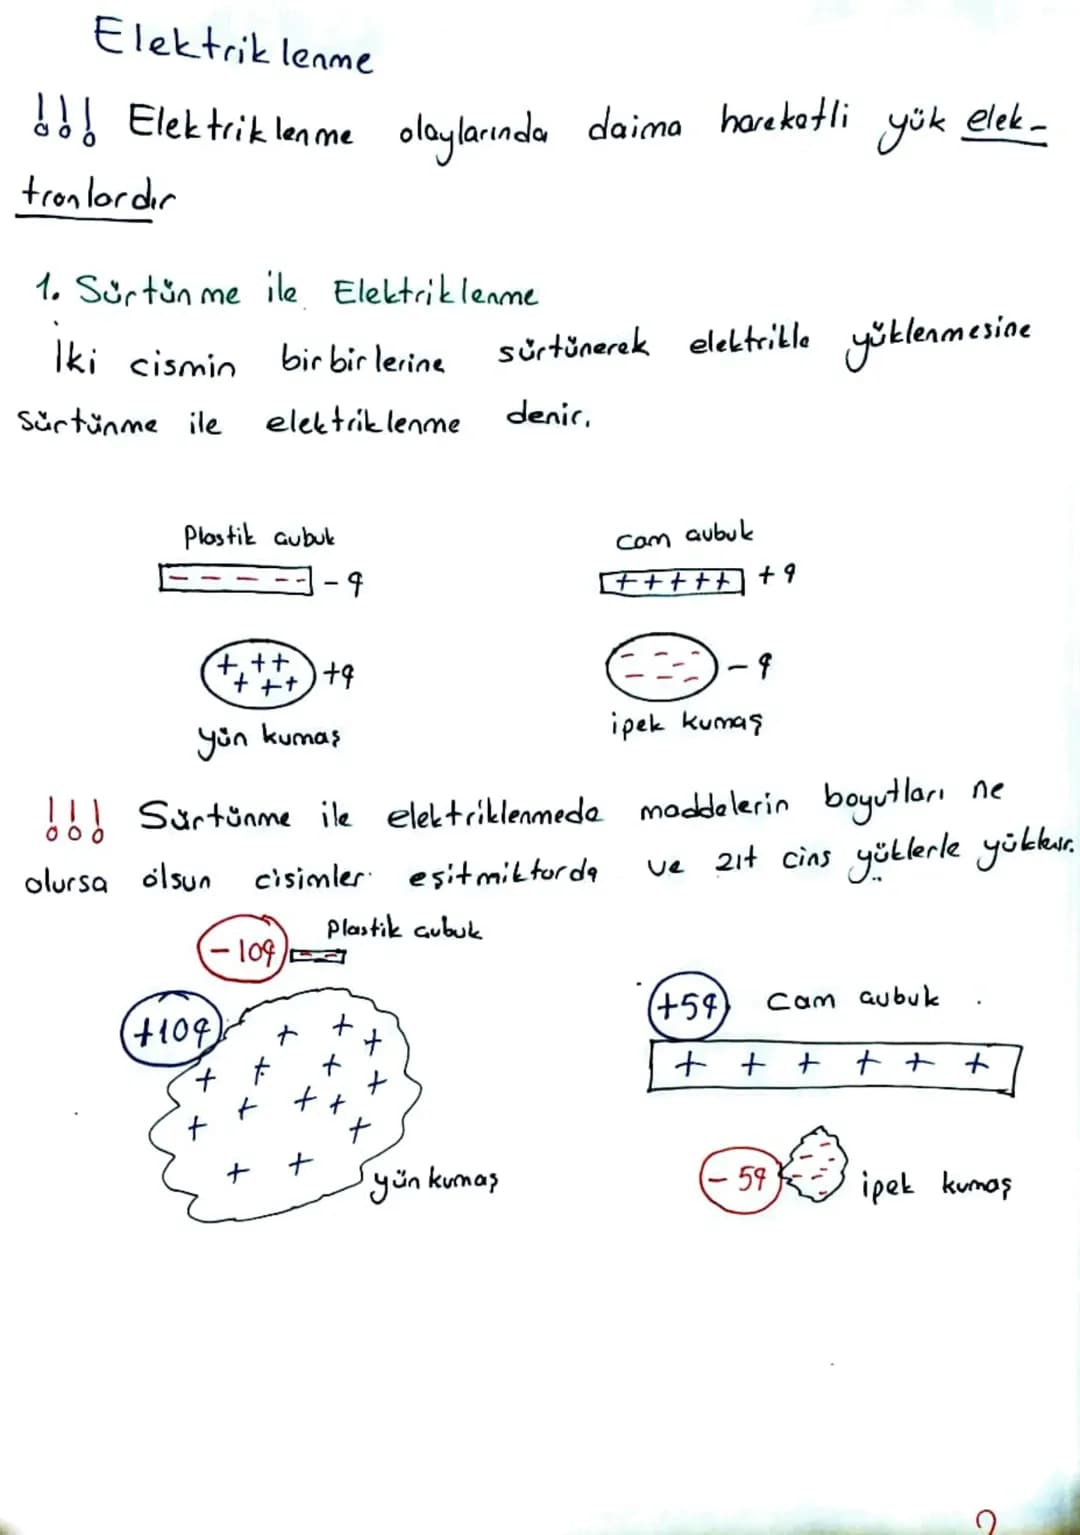 Elektriklenme
!!! Elektriklenme olaylarında daima hareketli yük elek-
tronlardır
1. Sürtünme ile Elektriklenme
İki cismin birbirlerine sürtünerek elektrikle yüklenmesine
sürtünme ile elektriklenme denir.
Plastik çubuk
- - - - - - -q
cam çubuk
+++++ +q
+ + + + + + +q
- - - - - - -q
yün kumaş
ipek kumaş
!!! Sürtünme ile elektriklenmede maddelerin boyutları ne
olursa olsun cisimler eşit miktarda ve zıt cins yüklerle yüklenir.
-10q Plastik çubuk
+10q
yün kumaş
+5q cam çubuk
+ + + + + +
-5q ipek kumaş
2